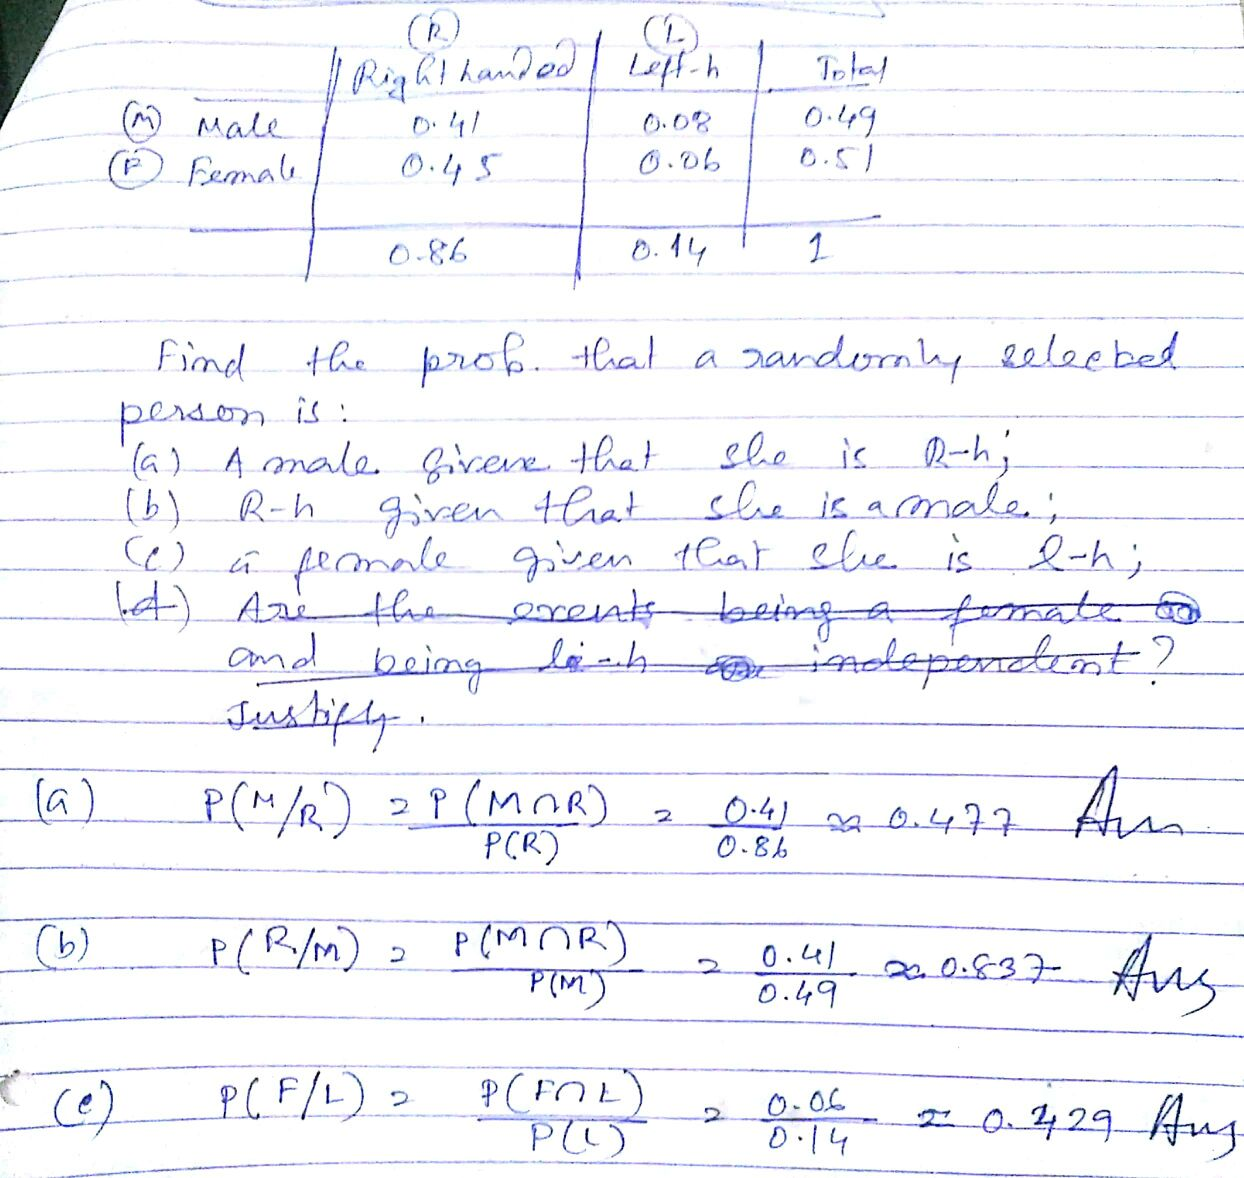 (R) (L)
Right handed Left-h Total
(M) Male 0.41 0.08 0.49
(F) Female 0.45 0.06 0.51
0.86 0.14 1
Find the prob. that a randomly selected
person is :
(a) A male given that she is R-h;
(b) R-h given that she is a male ;
(c) a female given that she is l-h;
(d) Are the events being a female
and being l-h independent?
Justify.
(a) P(M/R) = P(M∩R)/P(R) = 0.41/0.86 ≈ 0.477 Ans
(b) P(R/M) = P(M∩R)/P(M) = 0.41/0.49 ≈ 0.837 Ans
(c) P(F/L) = P(F∩L)/P(L) = 0.06/0.14 ≈ 0.429 Ans